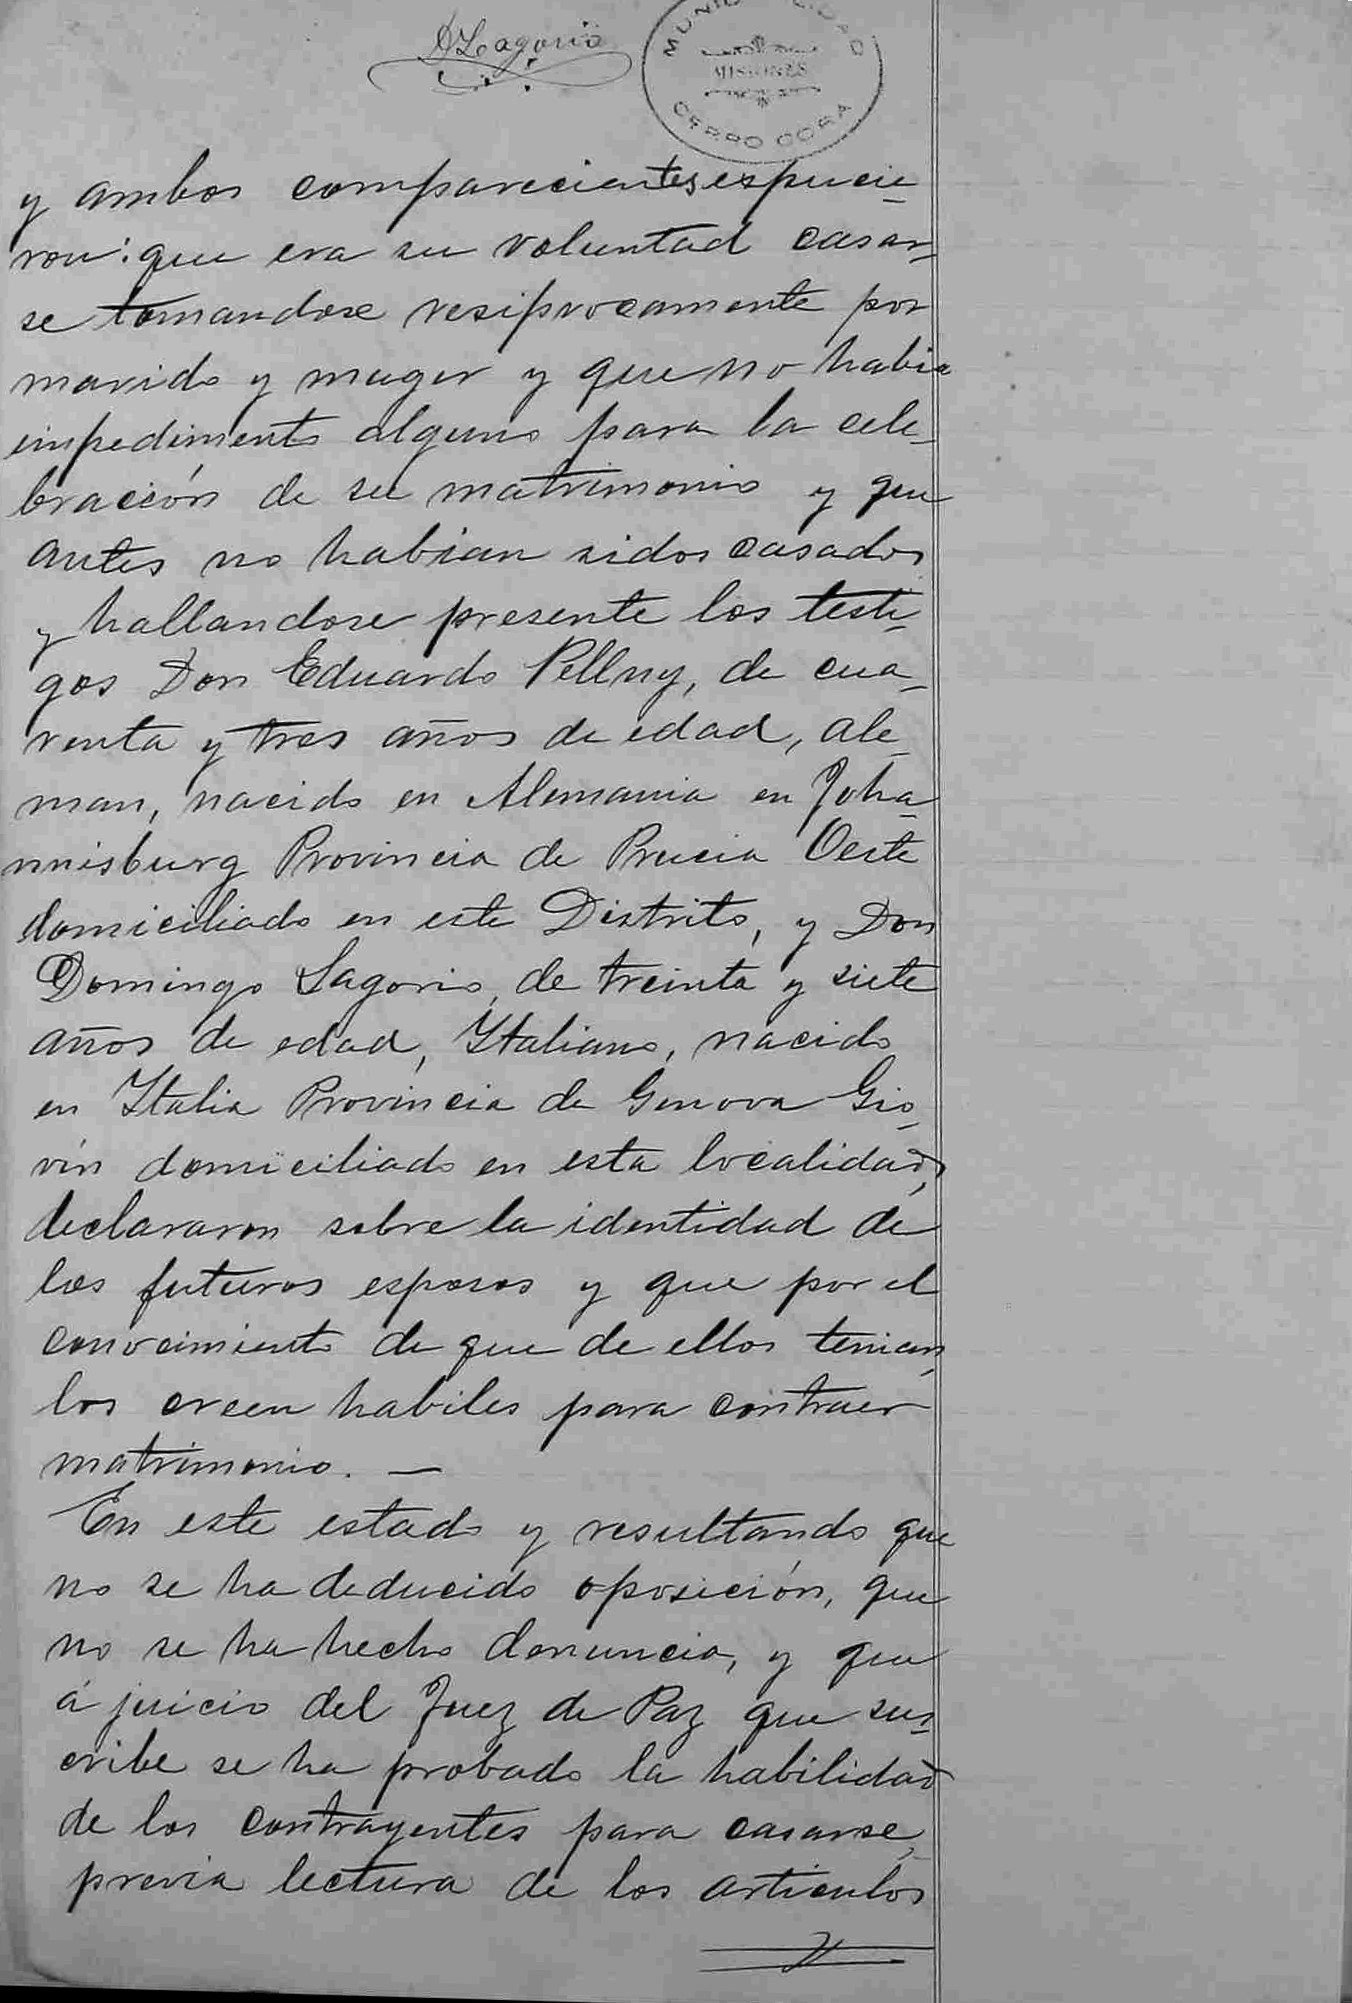 D Lagorio
MUNICIPALIDAD
MISIONES
CERRO CORA
y ambos comparecientes espucie-
ron: que era su voluntad casar-
se tomandose resiprocamente por
marido y muger y que no habia
impedimento alguno para la cele-
bración de su matrimonio y que
antes no habian sidos casados
y hallandose presente los testi-
gos Don Eduardo Pellny, de cua-
renta y tres años de edad, ale-
man, nacido en Alemania en Joha-
nnisburg Provincia de Prucia Oeste
domiciliado en este Distrito, y Don
Domingo Lagorio, de treinta y siete
años de edad, Italiano, nacido
en Italia Provincia de Genova Gio-
vin domiciliado en esta localidad,
declararon sobre la identidad de
los futuros esposos y que por el
conocimiento de que de ellos tenian,
los creen habiles para contraer
matrimonio. —
En este estado y resultando que
no se ha deducido oposición, que
no se ha hecho denuncia, y que
á juicio del Juez de Paz que sus-
cribe se ha probado la habilidad
de los contrayentes para casarse,
previa lectura de los articulos